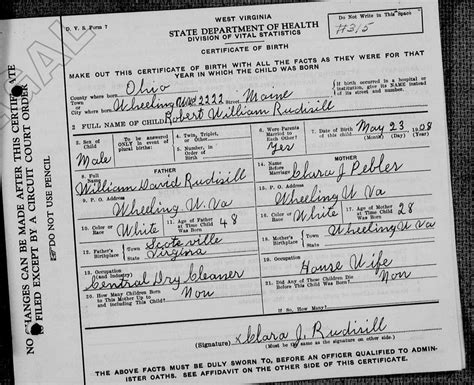 D. V. S. Form 7
WEST VIRGINIA
STATE DEPARTMENT OF HEALTH
DIVISION OF VITAL STATISTICS
CERTIFICATE OF BIRTH
Do Not Write in This Space
#315
MAKE OUT THIS CERTIFICATE OF BIRTH WITH ALL THE FACTS AS THEY WERE FOR THAT
YEAR IN WHICH THE CHILD WAS BORN
County where born Ohio
Town or
City where born Wheeling 2222 Street Maine
If birth occurred in a hospital or
institution, give its NAME instead
of its street and number.
2 FULL NAME OF CHILD Robert William Rudisill
3. Sex of
Child
Male
To be answered
ONLY in event of
plural births:
4. Twin, Triplet,
or Other.
5. Number, in
Order of
Birth
6. Were Parents
Married to
Each Other?
Yes
7. Date of Birth May 23, 1908
(Month) (Day) (Year)
FATHER
8. Full
Name
William David Rudisill
9. P. O. Address
Wheeling W. Va
10. Color or
Race White
11. Age of Father at
Time Child
Was Born 48
12. Father's
Birthplace
Virginia
13. Occupation
(and Industry)
Central Dry Cleaner
MOTHER
14. Maiden
Name Clara J Pebler
15. P. O. Address
Wheeling W Va
16. Color or
Race White
17. Age of Mother
at Time Child
Was Born 28
18. Mother's
Birthplace Wheeling W Va
19. Occupation
House Wife
20. How Many Children Born
to This Mother Up to
and Including This Child?
21. Did Any of These Children Die
Before This Child Was Born?
If So, How Many?
(Signature) x Clara J. Rudisill
(Must be the same as signature on other side)
THE ABOVE FACTS MUST BE DULY SWORN TO, BEFORE AN OFFICER QUALIFIED TO ADMIN-
ISTER OATHS. SEE AFFIDAVIT ON THE OTHER SIDE OF THIS CERTIFICATE.
NO CHANGES CAN BE MADE AFTER THIS CERTIFICATE
IS FILED EXCEPT BY A CIRCUIT COURT ORDER
DO NOT USE PENCIL